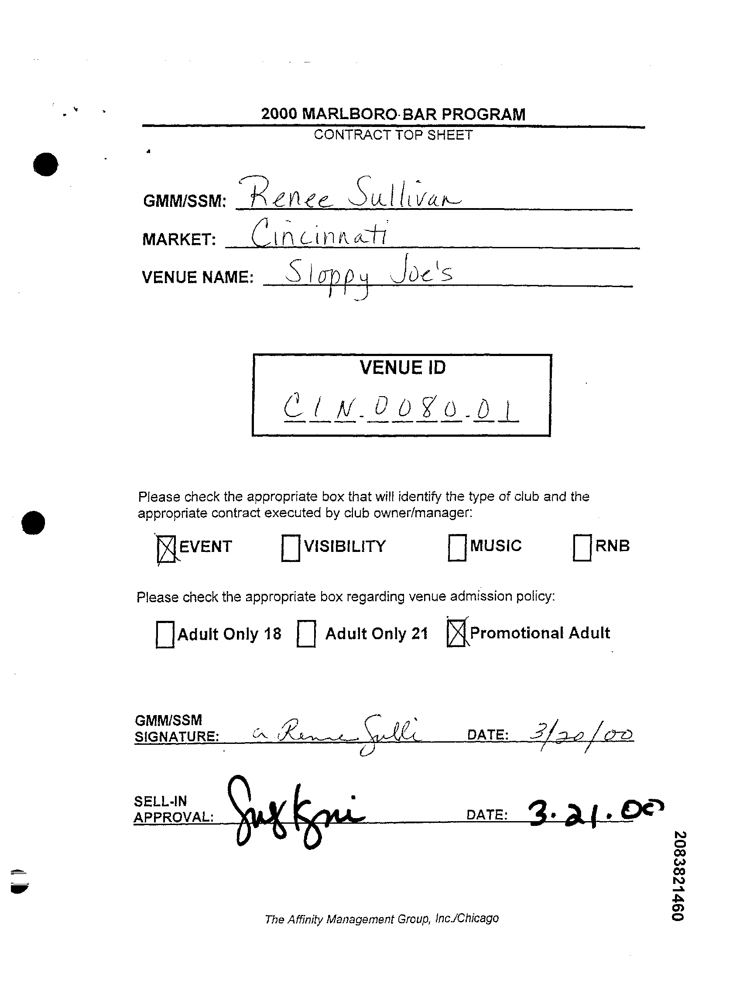 2000 MARLBORO BAR PROGRAM
CONTRACT TOP SHEET
GMM/SSM: Renee Sullivan
MARKET: Cincinnati
VENUE NAME: Sloppy Joe's
VENUE ID
CIN.0080.01
Please check the appropriate box that will identify the type of club and the
appropriate contract executed by club owner/manager:
EVENT VISIBILITY MUSIC RNB
Please check the appropriate box regarding venue admission policy:
Adult Only 18 Adult Only 21 Promotional Adult
GMM/SSM
SIGNATURE: DATE: 3/20/00
SELL-IN
APPROVAL: DATE: 3.21.00
2083821460
The Affinity Management Group, Inc./Chicago